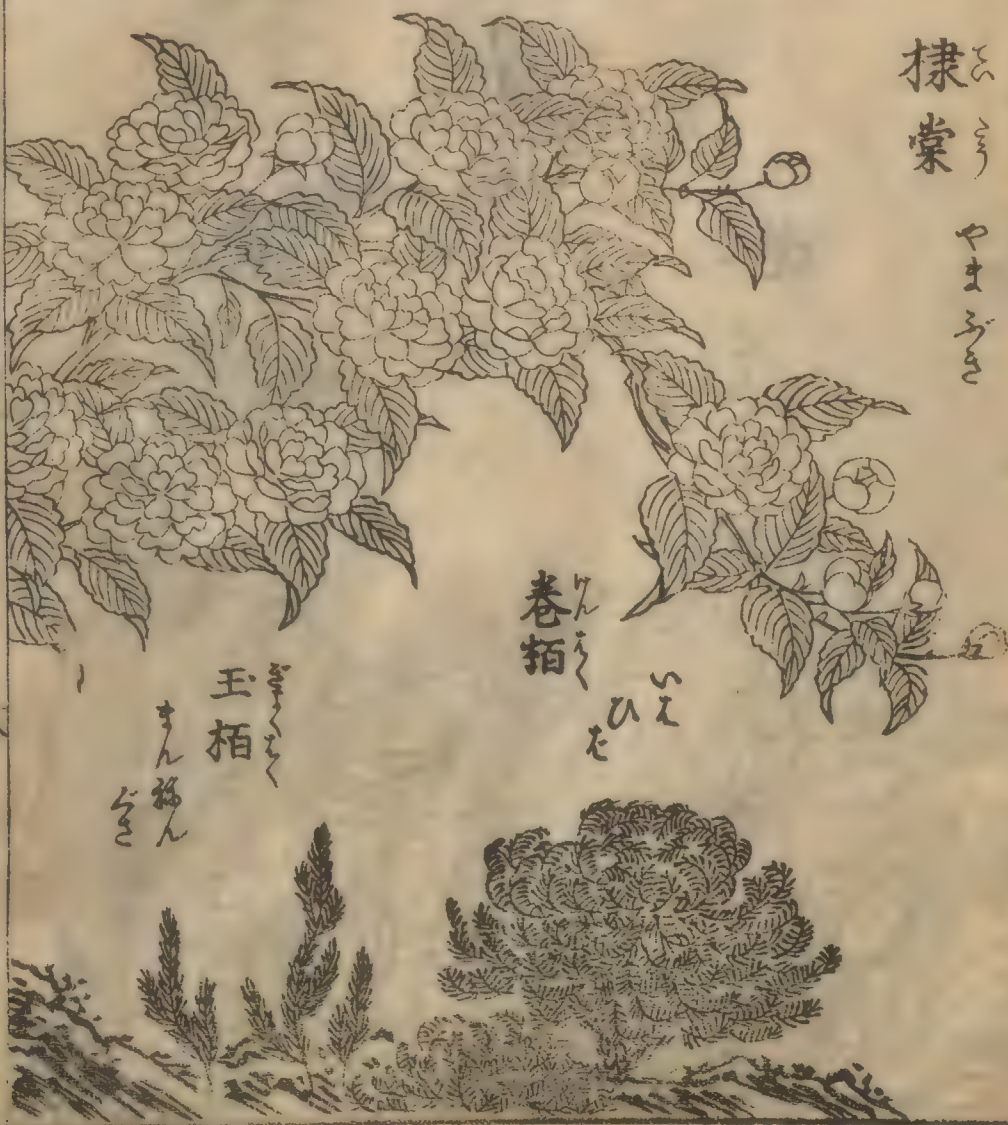 棣棠
てい とう
やまぶき
卷栢
けんはく
いは
ひ
ば
玉栢
ぎよくはく
まんねん
ぐさ